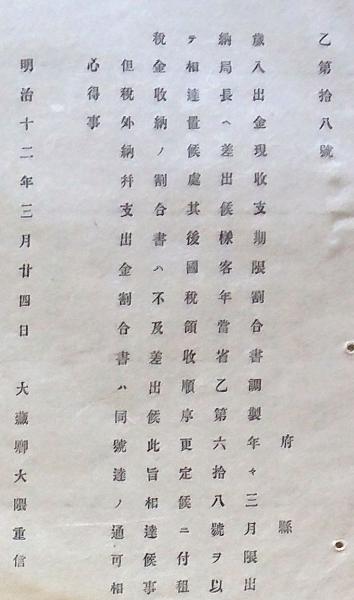 乙第拾八號
府縣
歳入出金現收支期限割合書調製年々三月限出
納局長ヘ差出候樣客年當省乙第六拾八號ヲ以
テ相達置候處其後國税領收順序更定候ニ付租
税金收納ノ割合書ハ不及差出候此旨相達候事
但税外納幷支出金割合書ハ同號達ノ通可相
心得事
明治十二年三月廿四日 大藏卿大隈重信